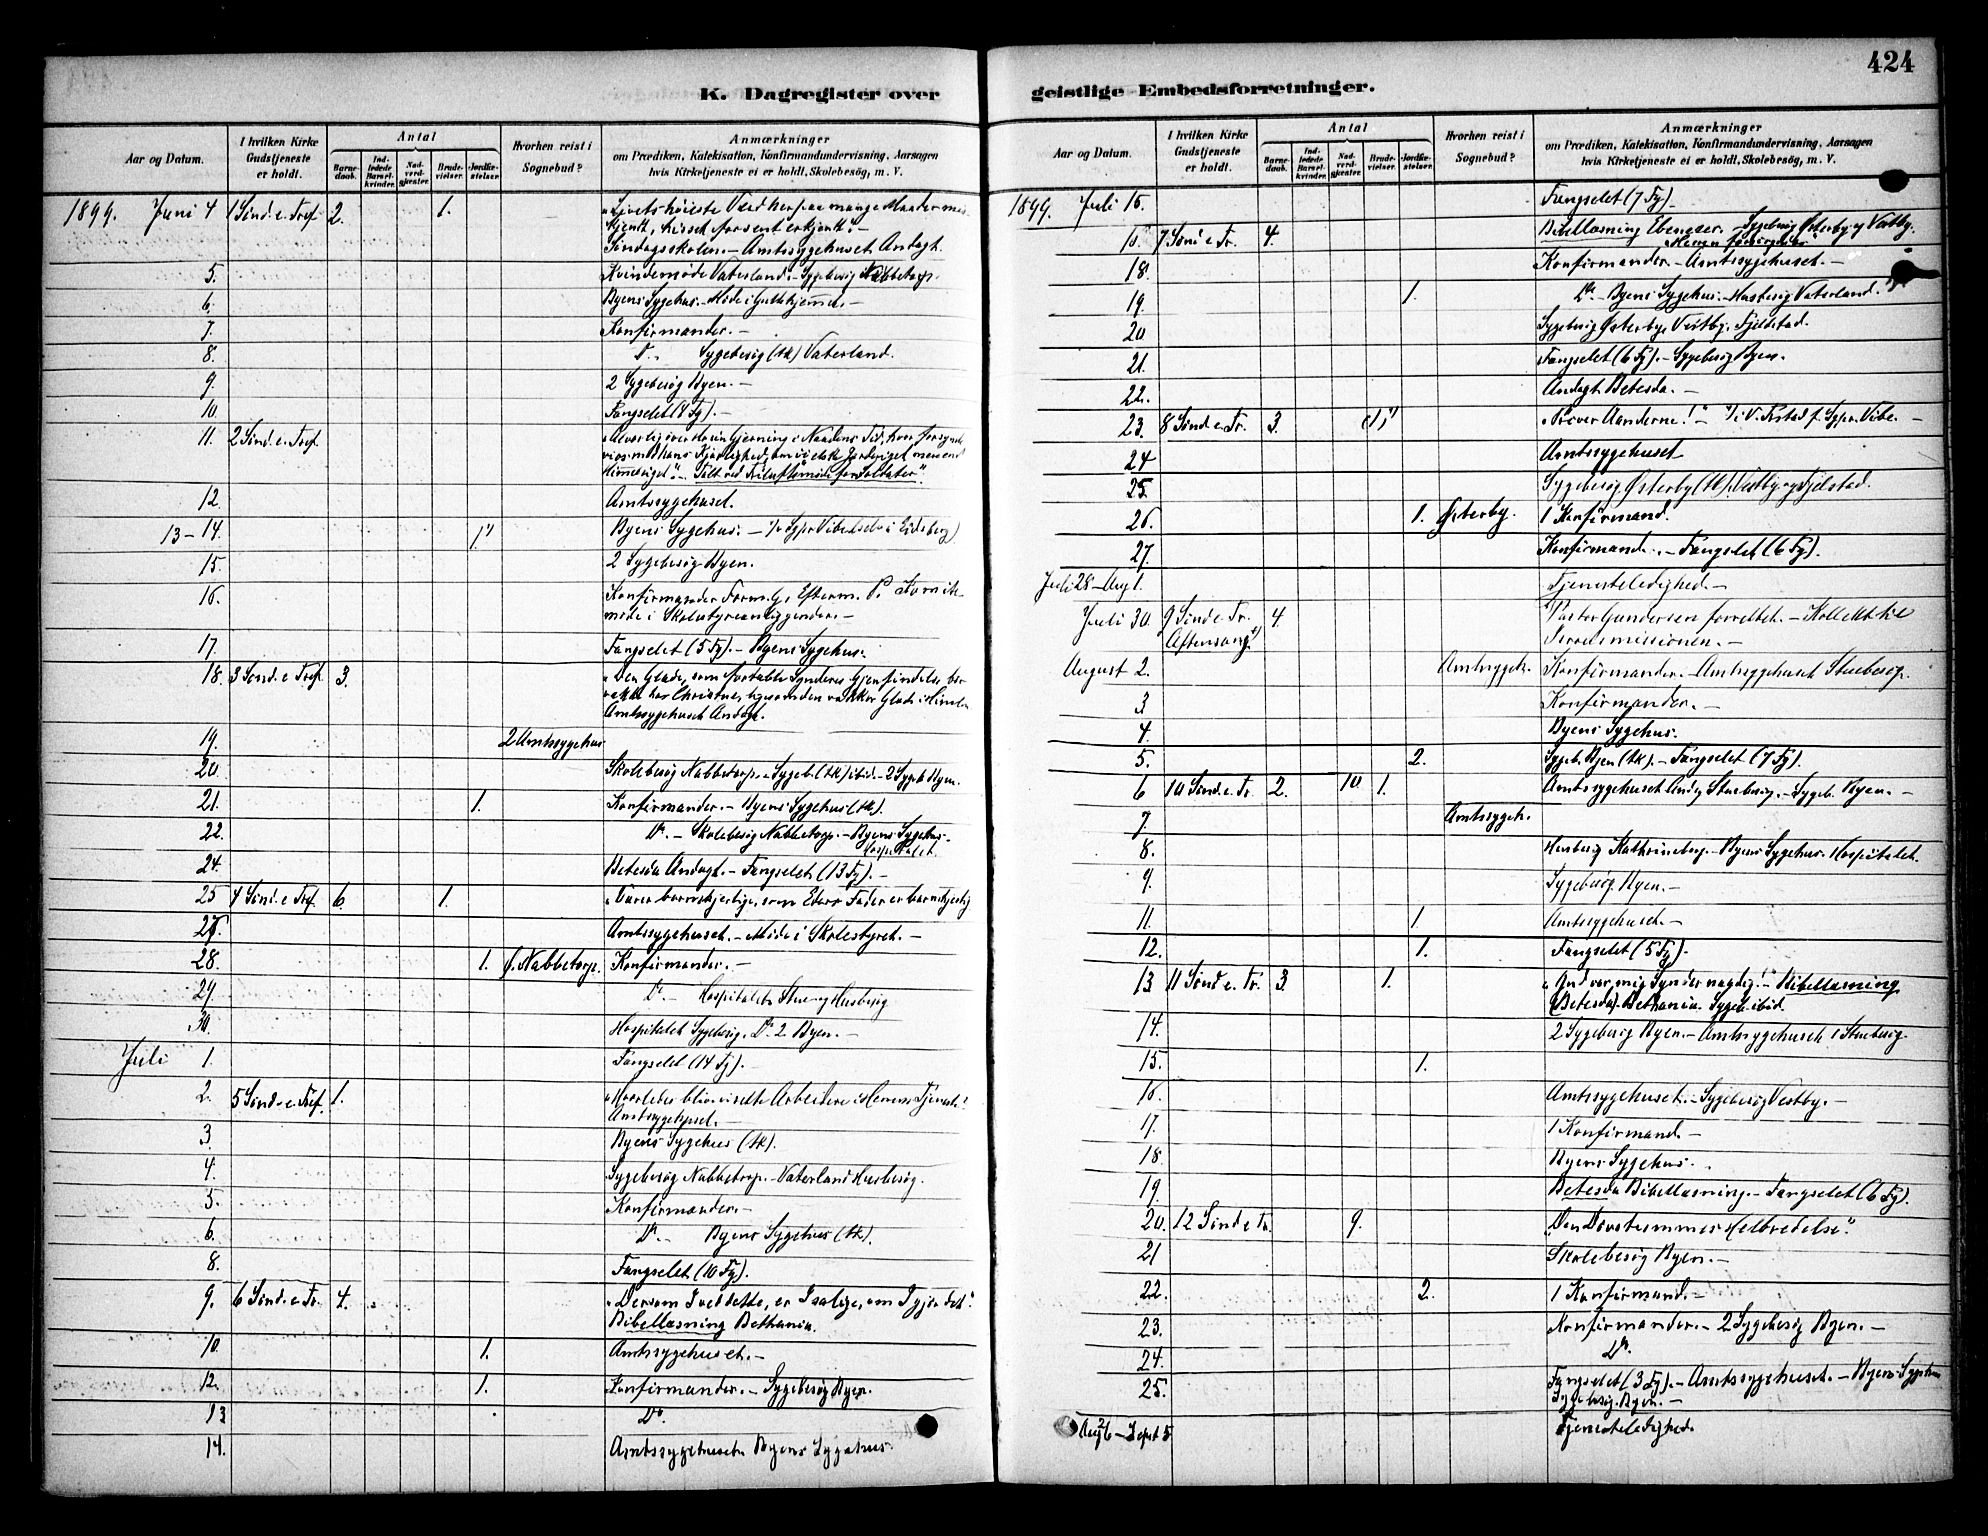 424
K. Dagregister over geistlige Embedsforretninger.
Aar og Datum.
I hvilken Kirke Gudstjeneste er holdt.
Antal
Barnedaab.
Indledede Barselkvinder.
Nadverdgjester.
Brudevielser.
Jordfæstelser.
Hvorhen reist i Sognebud?
Anmærkninger
om Prædiken, Katekisation, Konfirmandundervisning, Aarsagen
hvis Kirketjeneste ei er holdt, Skolebesøg, m. V.
1899. Juni 4 1 Sønd. e. Tref. 2. 1. "Livets høieste Værd her paa mange Maader mis-
kjendt, hisset for sent erkjendt."-
Søndagsskolen.- Amtssygehuset Andagt.
5. Kvindemøde Vaterland.- Sygebesøg Nabbetorp.
6. Byens Sygehus.- Møde i
7. Konfirmander.-
8. Do. Sygebesøg (Ak) Vaterland.
9. 2 Sygebesøg Byen.-
10. Fængslet (8 Fg).-
11. 2 Sønd. e. Tref.
12. Amtssygehuset.
13-14. 1. Byens Sygehus.-
15. 2 Sygebesøg Byen.
16. Konfirmander Form.
møde i Skolestyreanliggender.-
17. Fængslet (5 Fg).- Byens Sygehus.
18. 3 Sønd. e. Tref. 3. "Den Glæde, som fortabte Synderes Gjenfindelse bør
vække hos Christne, ligesom den vækker Glæde i Himlen
Amtssygehuset Andagt.
19. 2 Amtssygehus
20. Skolebesøg Nabbetorp.- Sygeb. (Ak) ibid.- 2 Sygeb. Byen.
21. 1. Konfirmander.- Byens Sygehus (Ak).
22. Do.- Skolebesøg Nabbetorp.- Byens Sygehus.-
Hospitalet.
24. Betesda Andagt.- Fængslet (13 Fg).-
25 4 Sønd. e. Tref. 6. 1. "Værer barmhjertige, som Eders Fader er barmhjertig
27. Amtssygehuset.- Møde i Skolestyret.-
28. 1. Nabbetorp. Konfirmander.-
29. Do.- Hospitalet Stue og Husbesøg
30. Hospitalet Sygebesøg. Do 2 Byen.-
Juli 1. Fængslet (14 Fg).-
2. 5 Sønd. e. Tref. 1. "Hvorledes blive vi rette Arbeidere i Herrens Tjeneste?
Amtssygehuset.-
3. Byens Sygehus (Ak).
4. Sygebesøg Nabbetorp.- Vaterland Husbesøg.
5. Konfirmander.-
6. Do.- Byens Sygehus (Ak).
8. Fængslet (10 Fg).
9. 6 Sønd. e. Tr. 4. "Dersom I ved dette, er I salige, om I gjør det".
Bibellæsning Bethania.
10. 1. Amtssygehuset.-
12. 1. Konfirmander.- Sygebesøg Byen.
13 Do.
14. Amtssygehuset Byens Sygehus.
Aar og Datum.
I hvilken Kirke Gudstjeneste er holdt.
Antal
Barnedaab.
Indledede Barselkvinder.
Nadverdgjester.
Brudevielser.
Jordfæstelser.
Hvorhen reist i Sognebud?
Anmærkninger
om Prædiken, Katekisation, Konfirmandundervisning, Aarsagen
hvis Kirketjeneste ei er holdt, Skolebesøg, m. V.
1899. Juli 15. Fængslet (7 Fg).
7 Sønd. e. Tr. 4. Bibellæsning Ebenezer.- Sygebesøg Østerby og Vestby.
18. Konfirmander.- Amtssygehuset.-
19. 1. Do.- Byens Sygehus.- Husbesøg Vaterland.
20 Sygebesøg Østerby, Vestby, Fjeldstad.
21. Fængslet (6 Fg).- Sygebesøg Byen.
22. Andagt Betesda.-
23. 8 Sønd. e. Tr. 3. "Prøver Aanderne!"
24 Amtssygehuset
25. Sygebesøg Østerby (Ak), Vestby og Fjelstad.
26. 1. Østerby. 1 Konfirmand.
27. Konfirmand.- Fængslet (6 Fg).
Juli 28-Aug 1. Tjenesteledighed.-
Juli 30. 9 Sønd e. Tr. Aftensang 4. Pastor Gundersen forrettet.- Kollekt til
missionen.-
August 2. Amtssygeh. Konfirmander.- Amtssygehuset Stuebesøg.
3 Konfirmander.-
4. Byens Sygehus.
5. 2. Sygeb. Byen (Ak).- Fængslet (7 Fg).
6 10 Sønd. e. Tr. 2. 10 1. Amtssygehuset Andg Stuebesøg.- Sygeb. Byen.-
7. Amtssygeh.
8. Husbesøg Kathrineborg.- Byens Sygehus. Hospitalet.
9. Sygebesøg. Byen.-
11. 1 Amtssygehuset.-
12. 1. Fængslet (5 Fg).
13 11 Sønd e. Tr. 3. 1. "Gud vær mig Synder naadig!"- Bibellæsning
(Betesda). Bethania. Sygeb. ibid.
14. 2 Sygebesøg Byen.- Amtssygehuset Stuebesøg.
15. 1.
16. Amtssygehuset.- Sygebesøg Vestby.-
17. 1 Konfirmand.-
18. Byens Sygehus.
19. Betesda Bibellæsning.- Fængslet (6 Fg).
20. 12 Sønd e Tr. 9. "Den Døvstummes Helbredelse"
21 Skolebesøg Byen.-
22. 2. 1 Konfirmand.-
23. Konfirmander.- 2 Sygebesøg Byen.-
24. Do.
25. Fængslet (3 Fg).- Amtssygehuset.- Byens Sygehus
Sygebesøg. Byen.-
Aug 26-Sept 5 Tjenesteledighed.